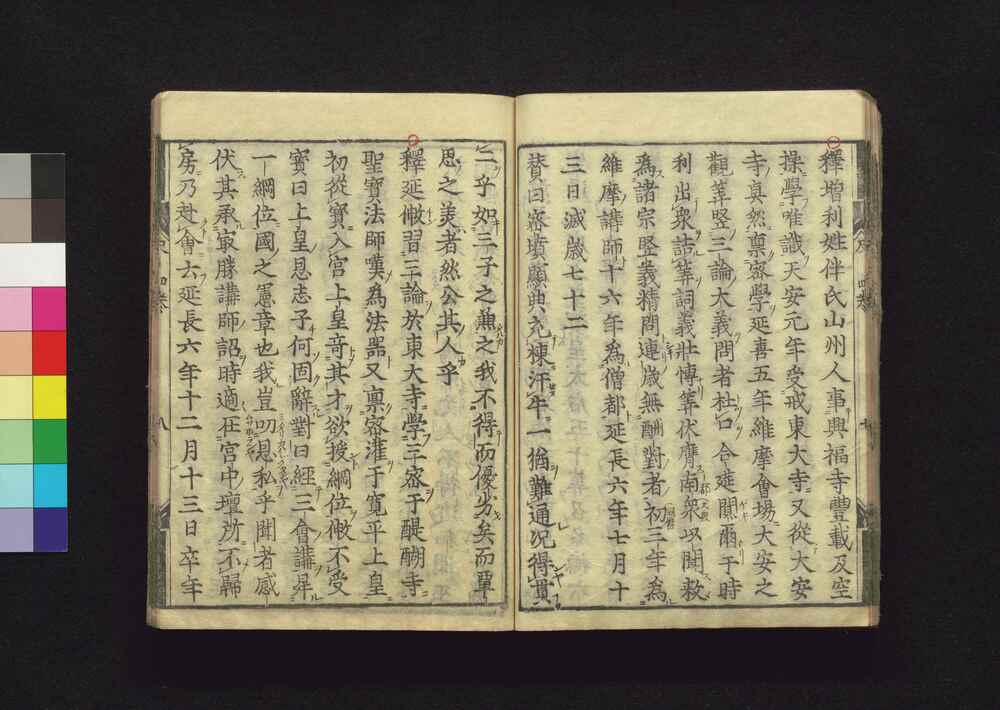 釋增利姓伴氏山州人事興福寺豐載及空
操學唯識天安元年受戒東大寺又從大安
寺真然稟密學延喜五年維摩會場大安之
觀筭竪三論大義問者杜口今莚闃爾于時
利出衆詰筭詞義壯博筭伏膺南榮以聞敕
爲諸宗竪義精問連歲無酬對者初三年爲
維摩講師十六年爲僧都延長六年七月十
三日滅歲七十二
賛曰密墳顯典充棟汗牛一猶難通况得貫
二乎如三子之兼之我不得而優劣矣而覃
思之美者然公其人乎
釋延敒習三論於東大寺學三密于醍醐寺
聖寶法師嘆爲法器又稟密灌于寬平上皇
初從寶入宮上皇竒其才欲授綱位敒不受
寶曰上皇恩志子何固辭對曰經三會講昇
丁綱位國之憲章也我豈叨恩私乎聞者感
伏其承㝡勝講師詔時適在宮中壇所不歸
房乃赴會去延長六年十二月十三日卒年
四卷
八